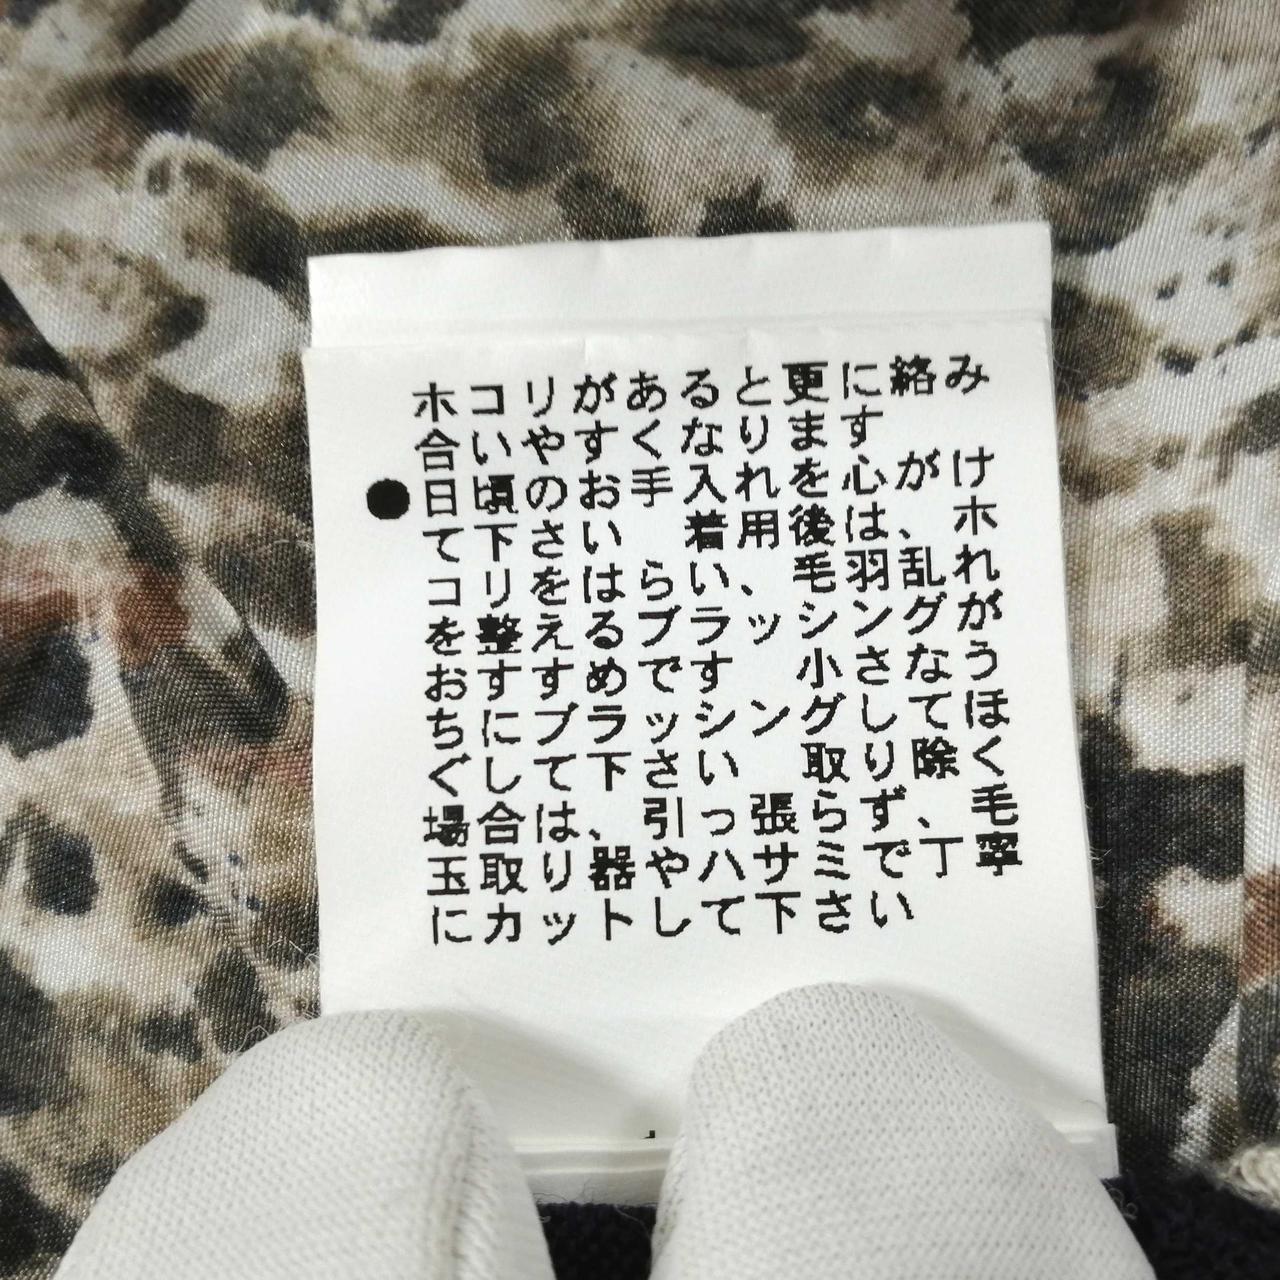 ホコリがあると更に絡み
合いやすくなります
●日頃のお手入れを心がけ
て下さい　着用後は、ホ
コリをはらい、毛羽乱れ
を整えるブラッシングが
おすすめです　小さなう
ちにブラッシングしてほ
ぐして下さい　取り除く
場合は、引っ張らず、毛
玉取り器やハサミで丁寧
にカットして下さい